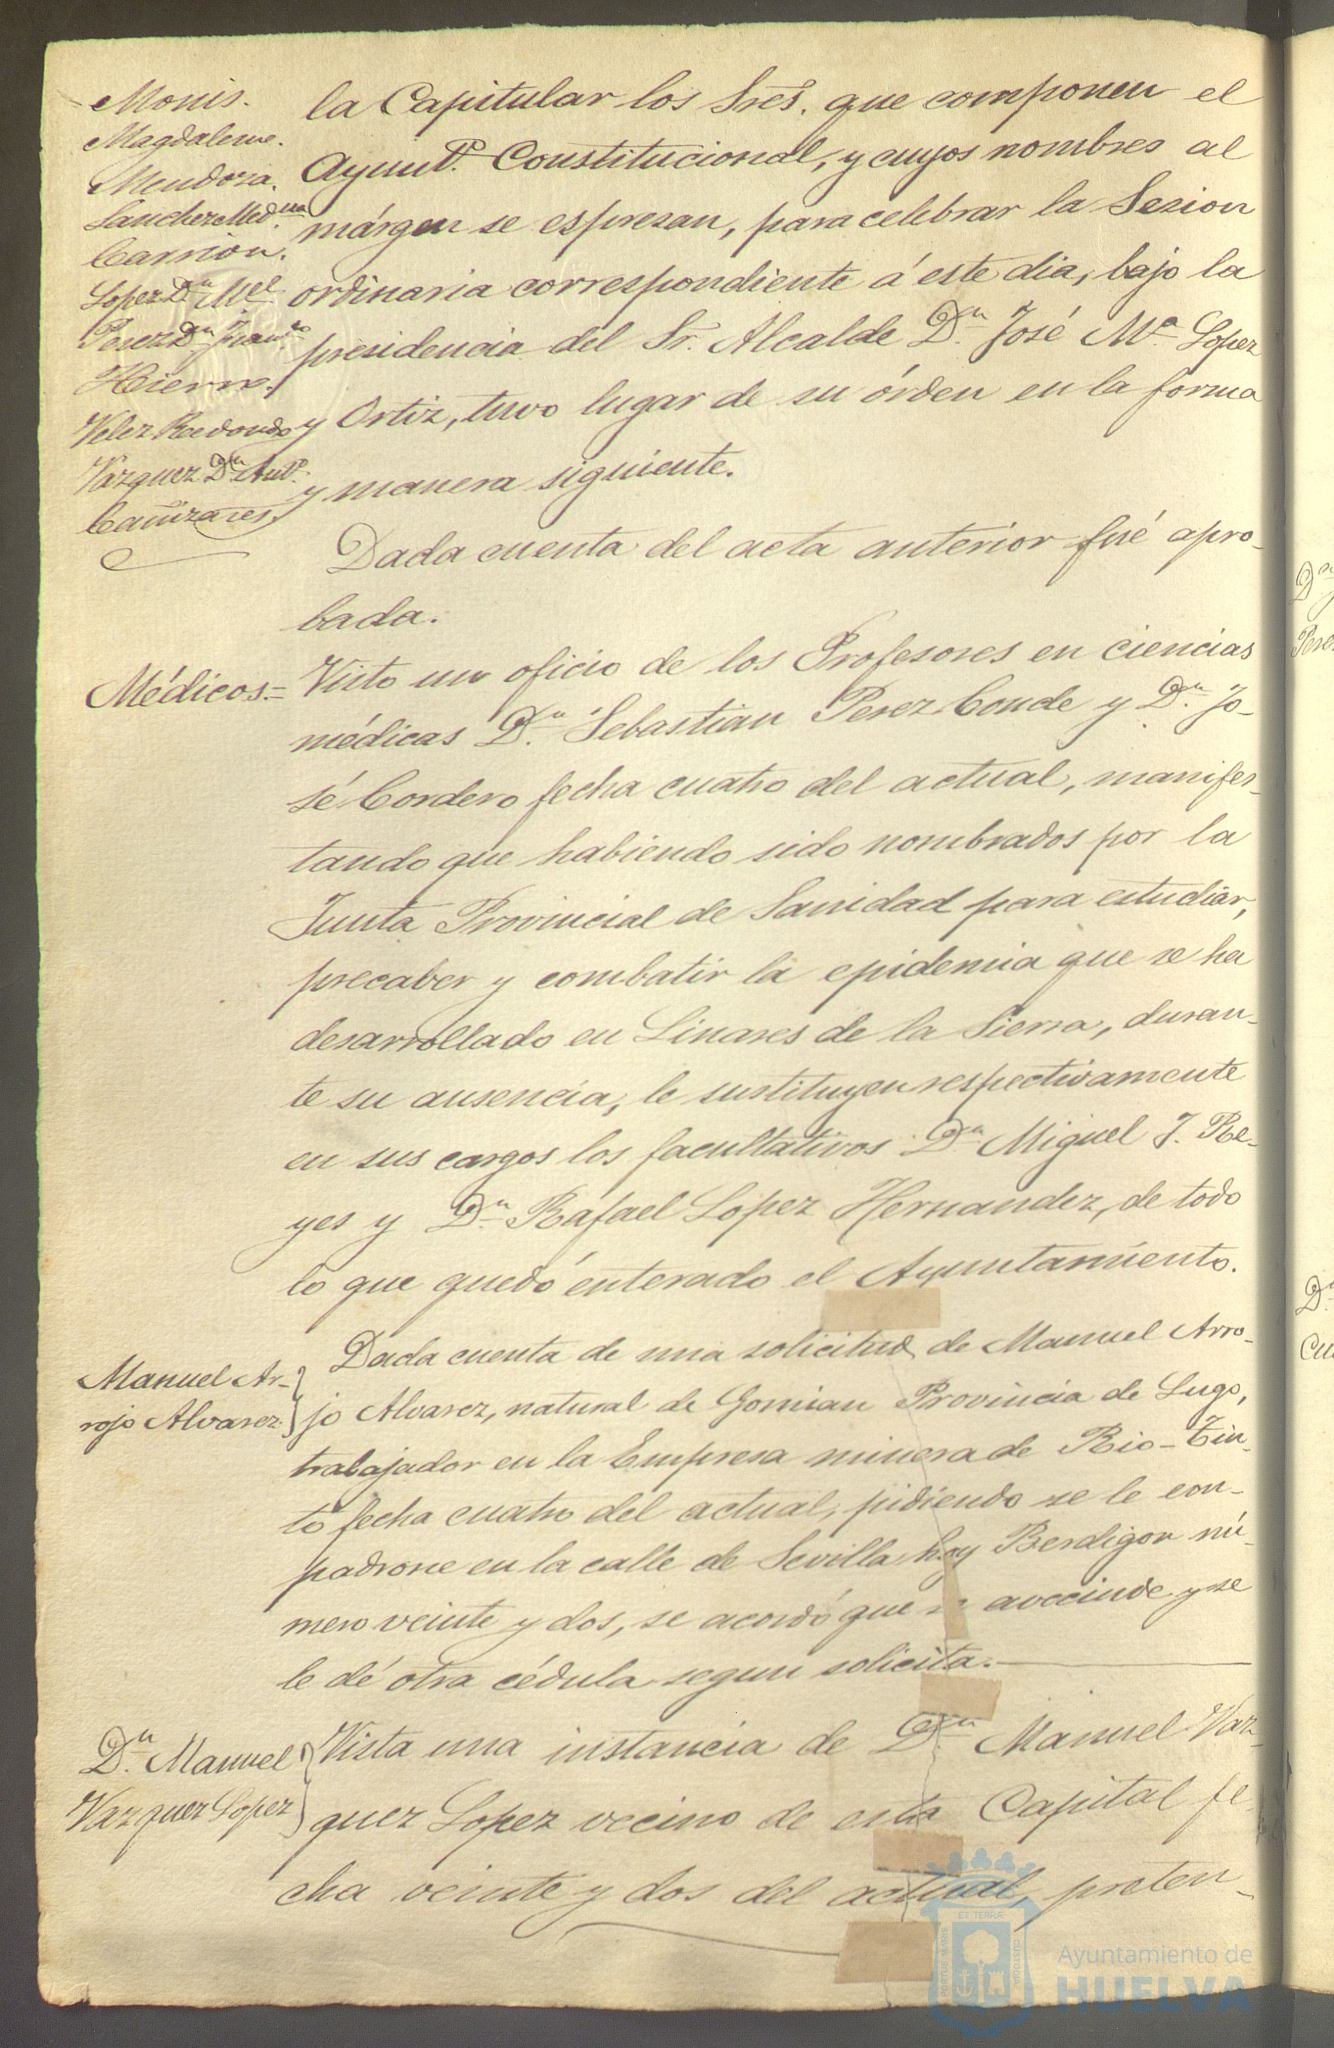 Monis.
Magdalene.
Mendoza.
Sanchez Med.na
Carrion.
Lopez Dn Mel
Perez Dn Franco
Hierro.
Velez Redondo
Vazquez Dn Anto.
Cañizares,
la Capitular los Sres. que componen el
Ayunto. Constitucional, y cuyos nombres al
márgen se espresan, para celebrar la Sesion
ordinaria correspondiente á este dia, bajo la
presidencia del Sr. Alcalde Dn. José Ma. Lopez
y Ortiz, tuvo lugar de su órden en la forma
y manera siguiente.
Dada cuenta del acta anterior fué apro-
bada.
Médicos.=
Visto un oficio de los Profesores en ciencias
médicas Dn. Sebastian Perez Conde y Dn. Jo-
sé Cordero fecha cuatro del actual, manifes-
tando que habiendo sido nombrados por la
Junta Provincial de Sanidad para estudiar,
precaber y combatir la epidemia que se ha
desarrollado en Linares de la Sierra, duran-
te su ausencia, le sustituyen respectivamente
en sus cargos los facultativos Dn Miguel J. Re-
yes y Dn Rafael Lopez Hernandez, de todo
lo que quedó enterado el Ayuntamiento.
Manuel Ar-
rojo Alvarez
Dada cuenta de una solicitud de Manuel Arro-
jo Alvarez, natural de Gomian Provincia de Lugo,
trabajador en la Empresa minera de Rio-Tin-
to fecha cuatro del actual, pidiendo se le em-
padrone en la calle de Sevilla hoy Berdigon nú-
mero veinte y dos, se acordó que se avecinde y se
le dé otra cédula segun solicita.
Dn. Manuel
Vazquez Lopez
Vista una instancia de Dn. Manuel Vaz-
quez Lopez vecino de esta Capital fe-
cha veinte y dos del actual, preten-
Ayuntamiento de
HUELVA